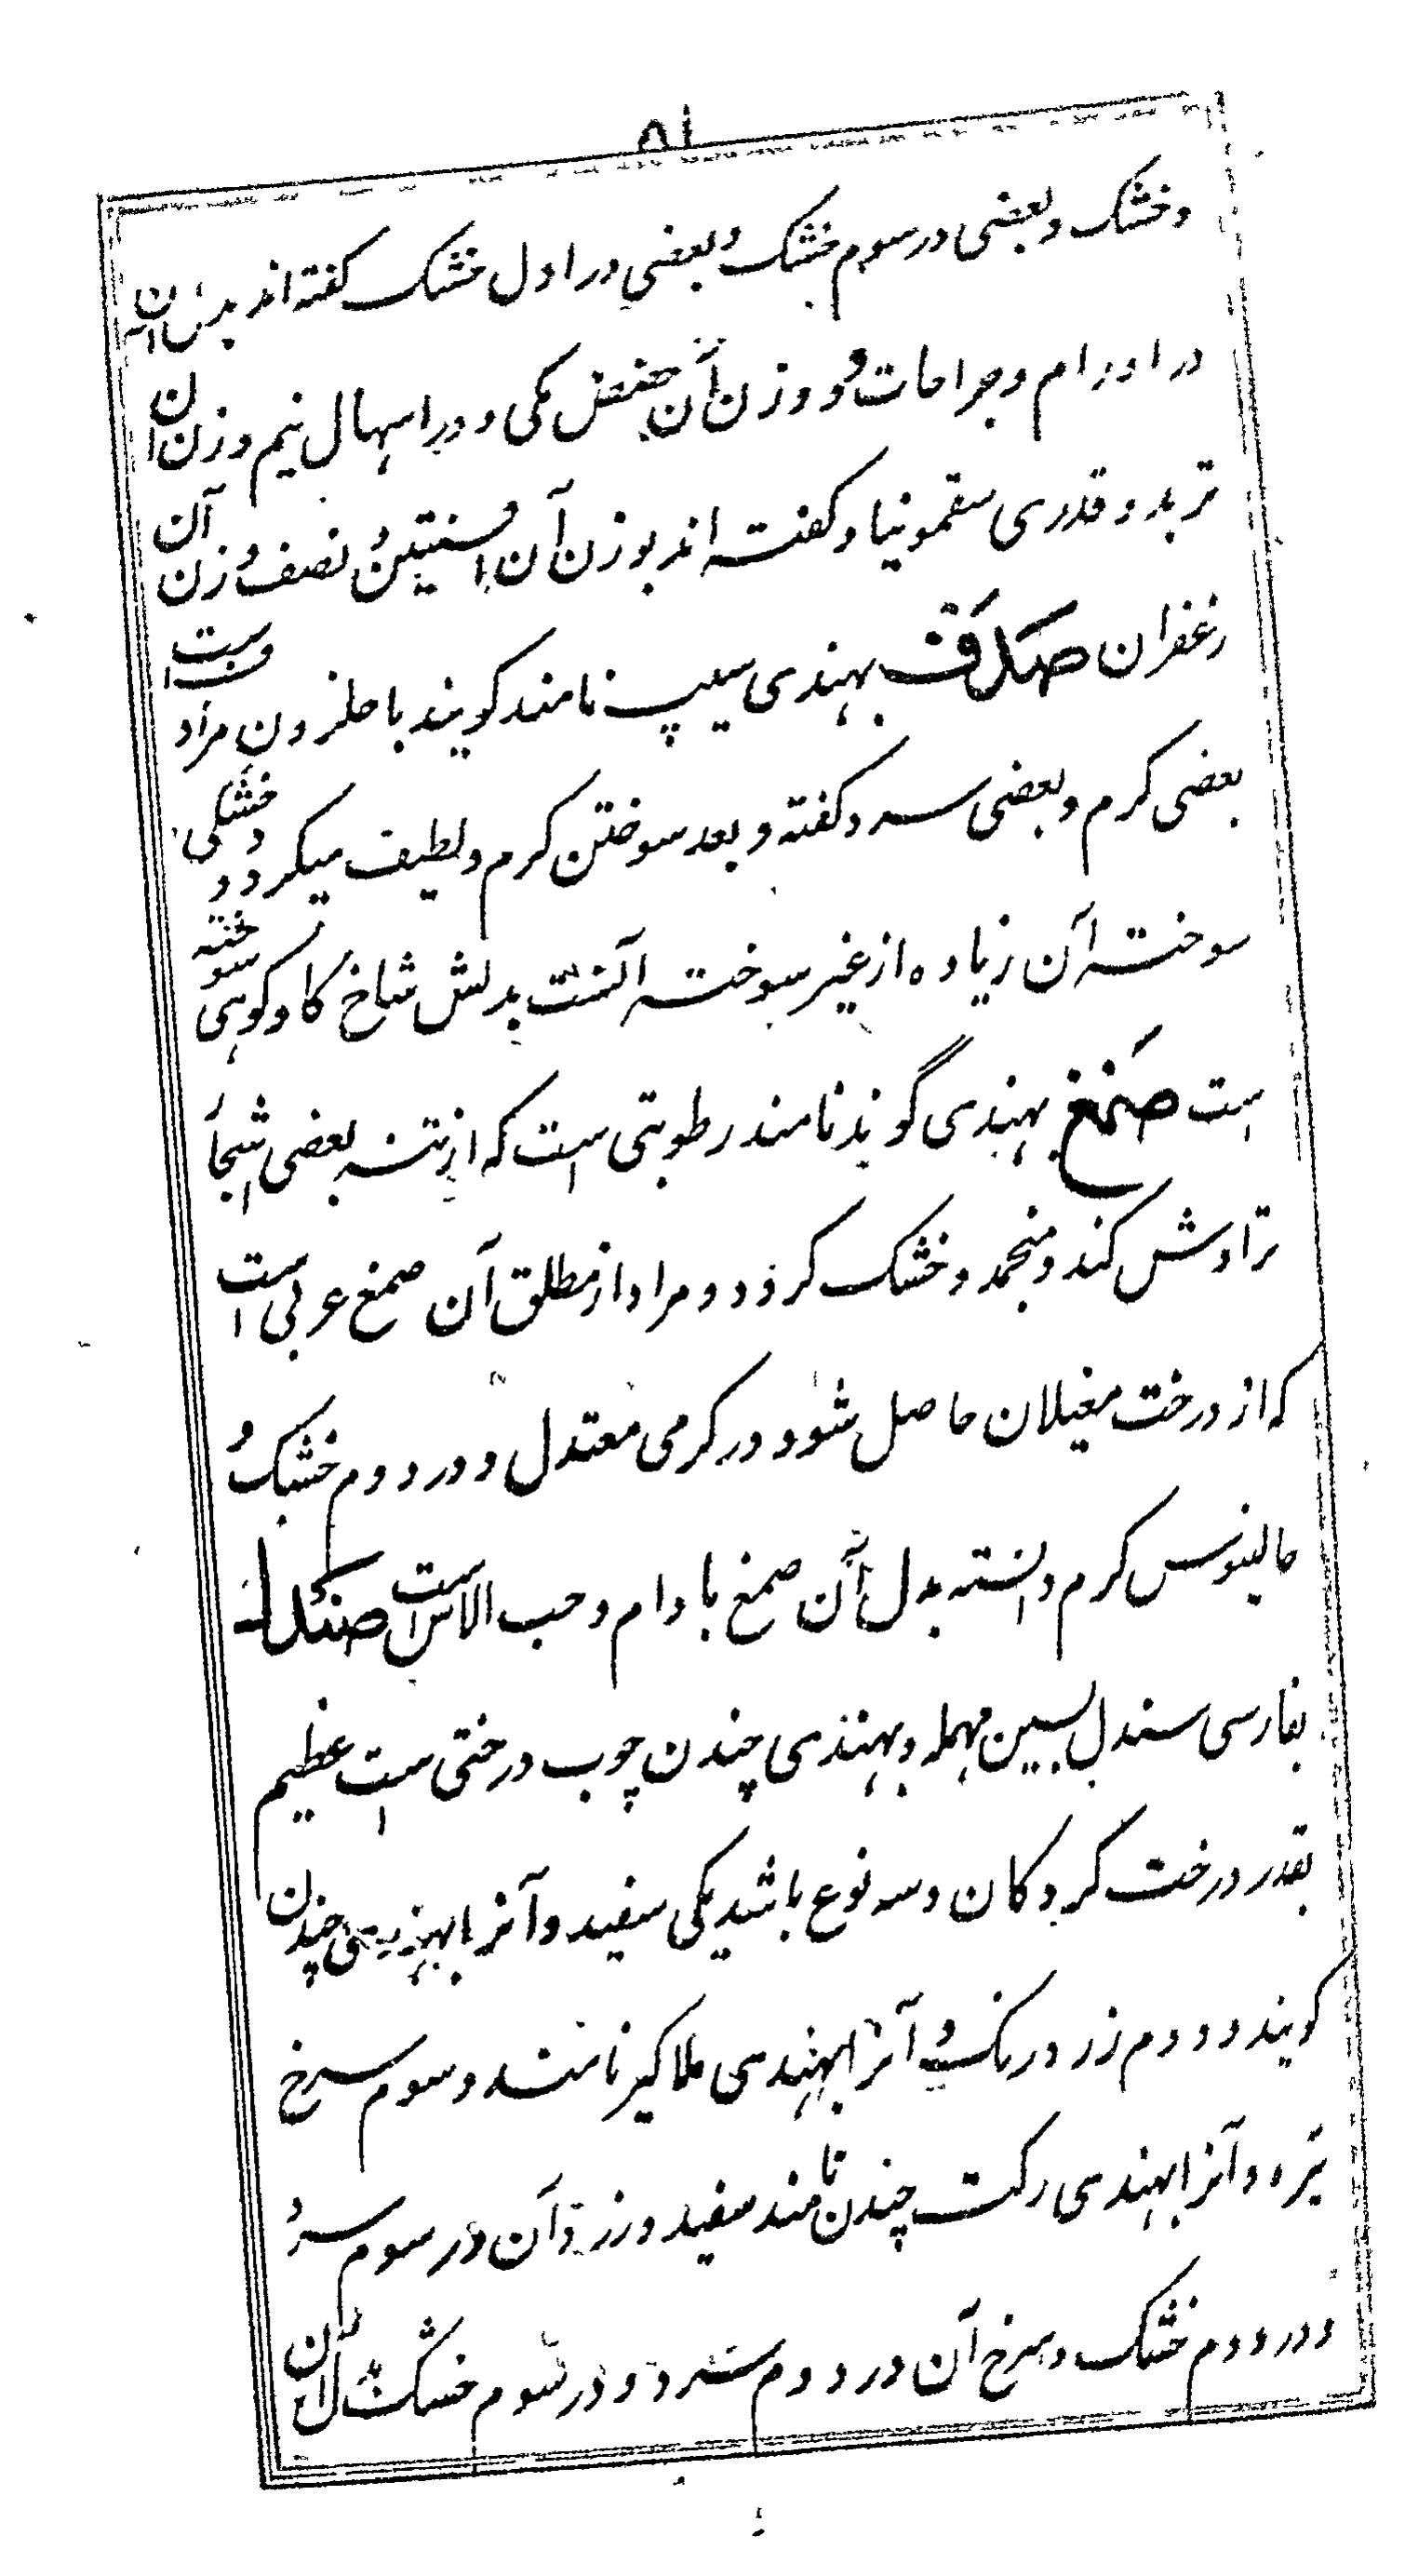 ۵۱
وخشک وبعضی درسوم خشک وبعضی در اول خشک کفته اند بدل آن
در اورام وجراحات دو وزن آن حضض مکی و در اسهال نیم وزن آن
تربد و قدری سقمونیا و کفته اند بوزن آن افسنتین و نصف وزن آن
زعفران صدف بهندی سیپ نامند کویند با حلزون مرادف است
بعضی کرم وبعضی سرد کفته و بعد سوختن کرم ولطیف میکردد و خشکی
سوخته آن زیاده از غیر سوخته آنست بدلش شاخ کاو کوهی سوخته
است صمغ بهندی گوند نامند رطوبتی است که از تنه بعضی اشجار
تراوش کند و منجمد و خشک کردد و مراد از مطلق آن صمغ عربی است
که از درخت مغیلان حاصل شود در کرمی معتدل و در دوم خشک و
جالینوس کرم دانسته بدل آن صمغ بادام وحب الاس است صندل
بفارسی سندل بسین مهمله و بهندی چندن چوب درختی است عظیم
بقدر درخت کردکان وسه نوع باشد یکی سفید وآنرا بهندی چندن
کویند و دوم زرد رنک و آنرا بهندی ملاکیر نامند وسوم سرخ
تیره و آنرا بهندی رکت چندن نامند سفید و زرد آن در سوم سرد
و در دوم خشک وسرخ آن در دوم سرد و در سوم خشک بدل آن